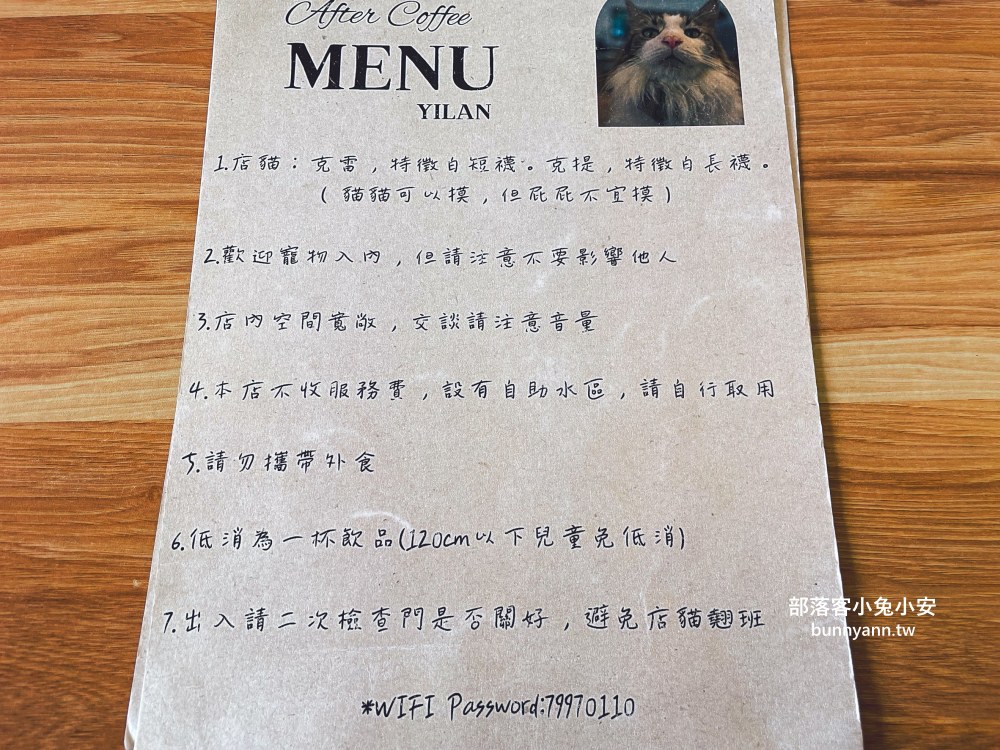 After Coffee
MENU
YILAN
1.店貓：克雷，特徵白短襪。克提，特徵白長襪。
（貓貓可以摸，但屁屁不宜摸）
2.歡迎寵物入內，但請注意不要影響他人
3.店內空間寬敞，交談請注意音量
4.本店不收服務費，設有自助水區，請自行取用
5.請勿攜帶外食
6.低消為一杯飲品(120cm以下兒童免低消)
7.出入請二次檢查門是否關好，避免店貓翹班
*WIFI Password:79970110
部落客小兔小安
bunnyann.tw